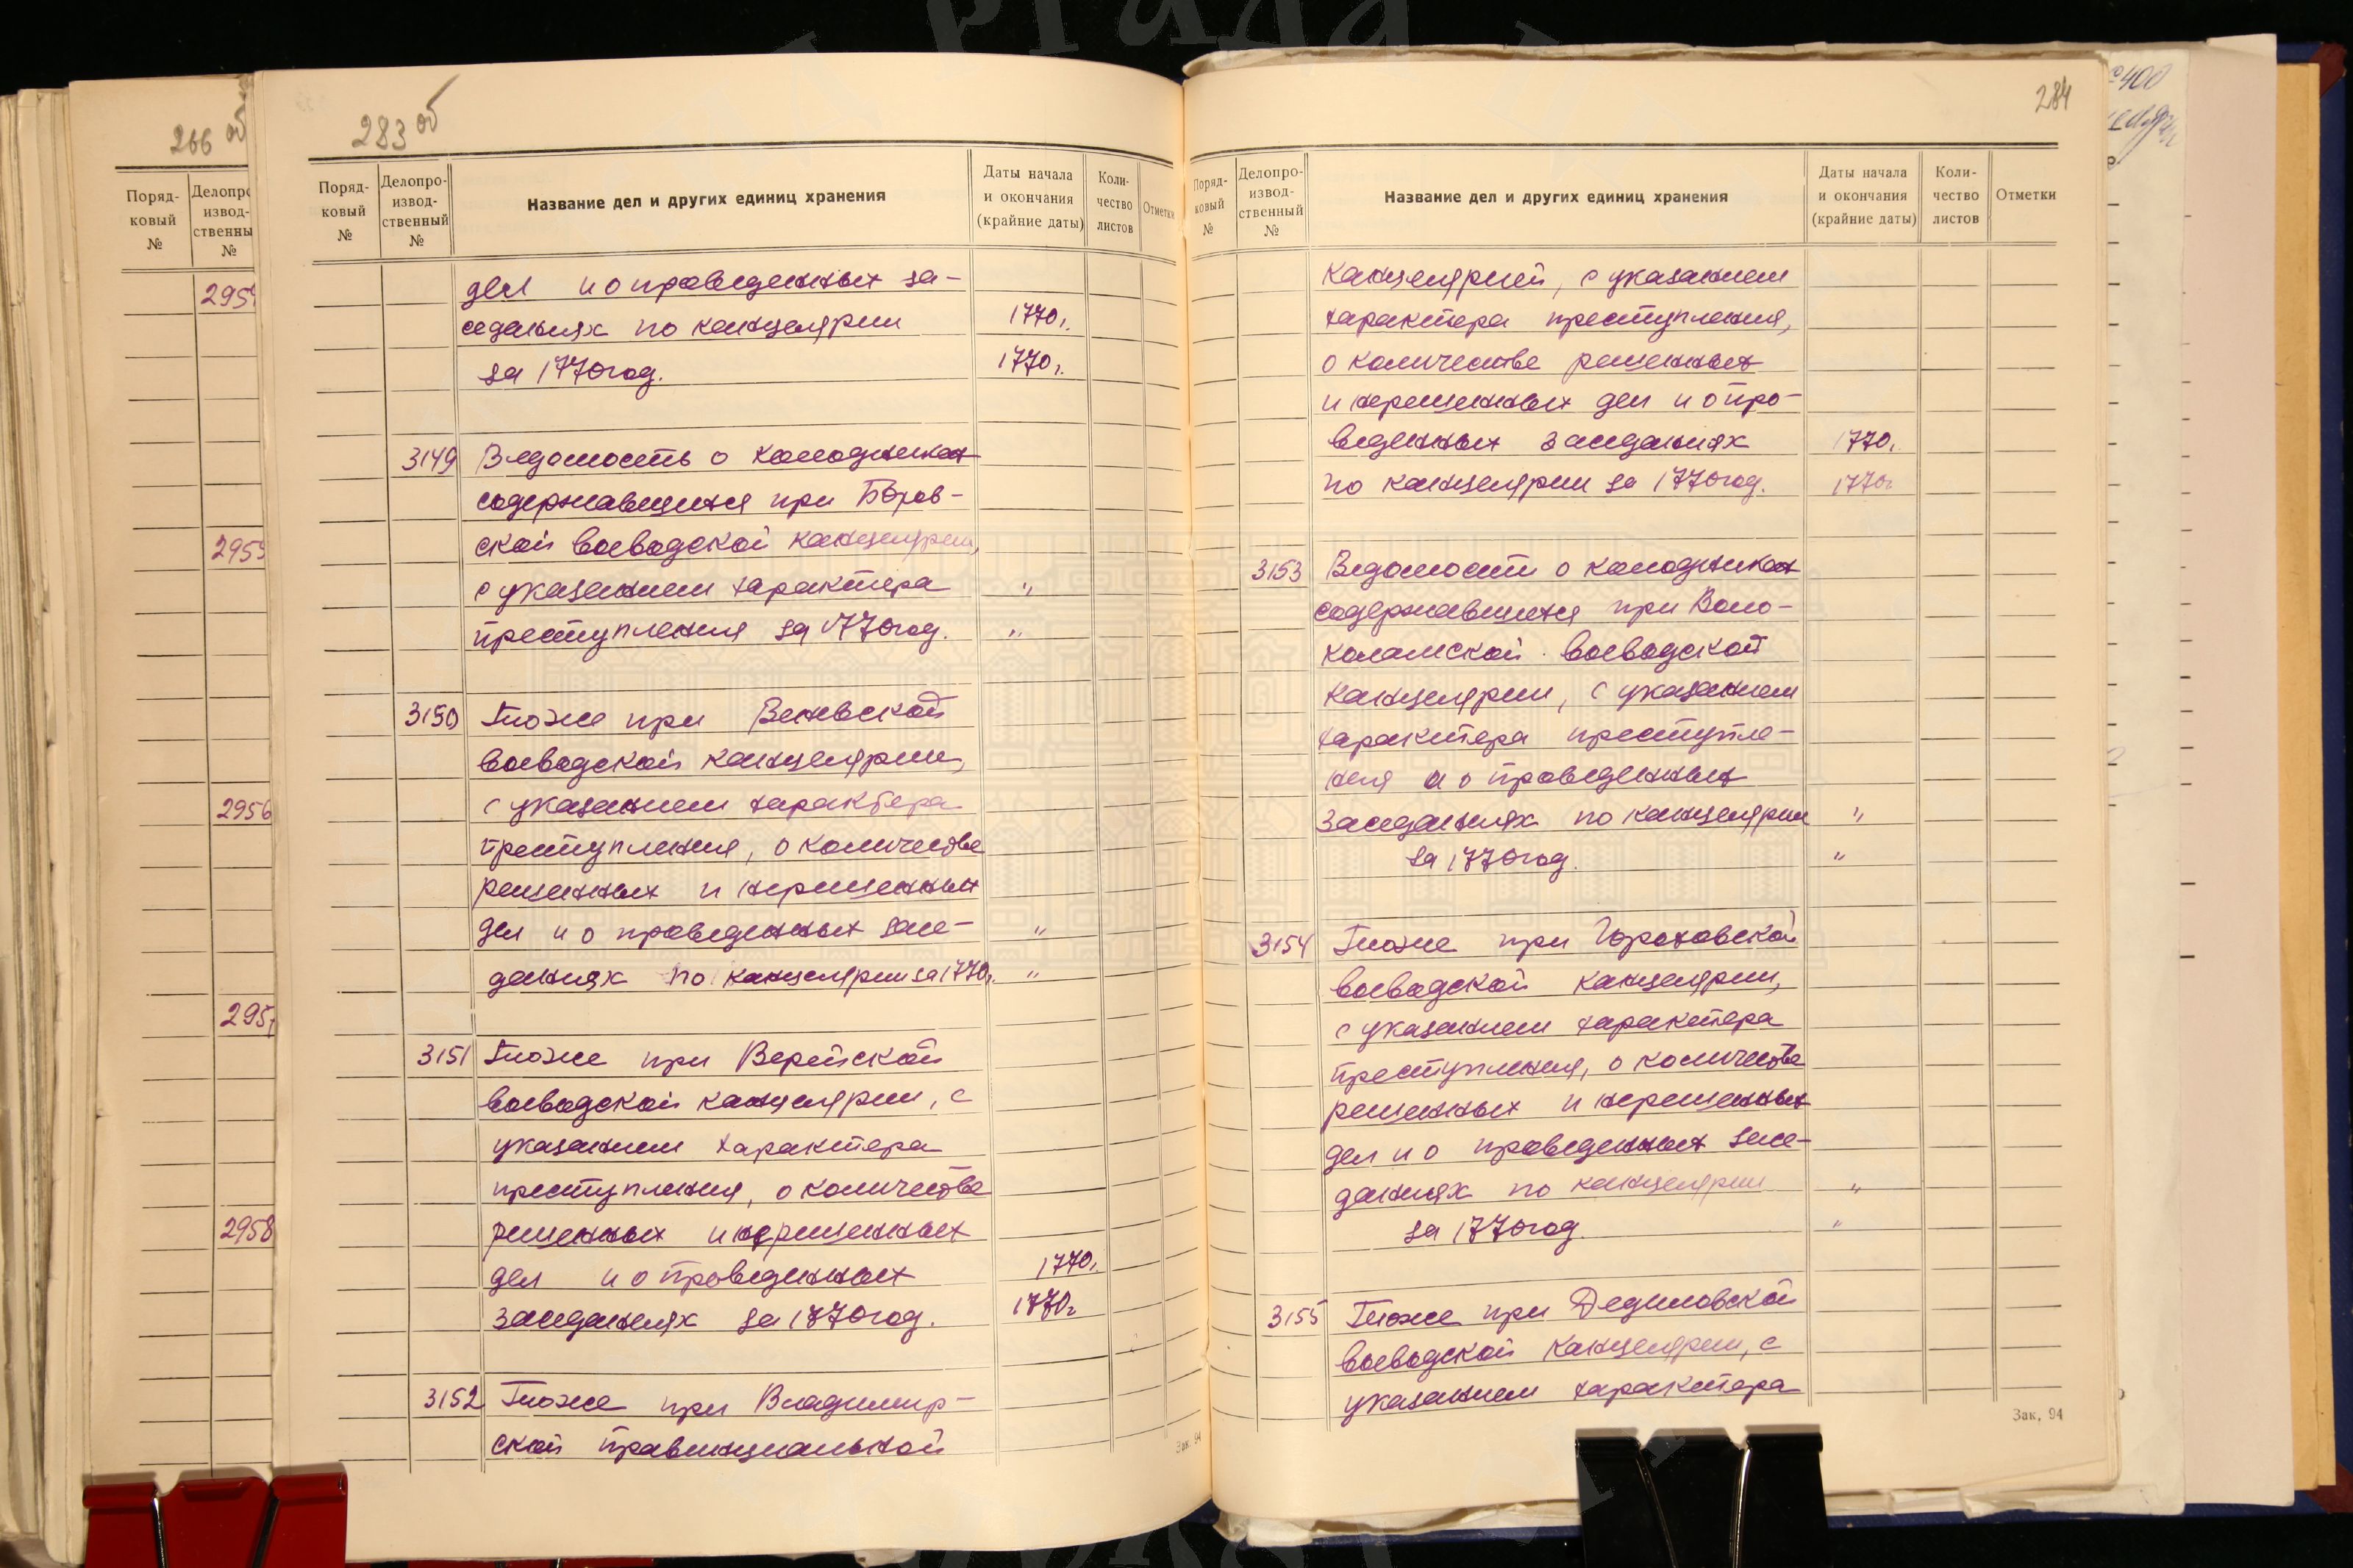 266 об
Поряд-
ковый
№
Делопро
извод-
ственны
№
295
295
2956
295
2958
283 об
Поряд-
ковый
№
Делопро-
извод-
ственный
№
Название дел и других единиц хранения
Даты начала
и окончания
(крайние даты)
Коли-
чество
листов
Отметки
дел и о проведенных за-
седаниях по канцелярии 1770 г.
за 1770 год. 1770 г.
3149 Ведомость о колодниках
содержавшихся при Боров-
ской воеводской канцелярии,
с указанием характера "
преступления за 1770 год. "
3150 То же при Веневской
воеводской канцелярии,
с указанием характера
преступления, о количестве
решенных и нерешенных
дел и о проведенных засе- "
даниях по канцелярии за 1770 г. "
3151 То же при Верейской
воеводской канцелярии, с
указанием характера
преступления, о количестве
решенных и нерешенных
дел и о проведенных 1770 г.
заседаниях за 1770 год. 1770 г
3152 То же при Владимир-
ской провинциальной
Зак. 94
284
Поряд-
ковый
№
Делопро-
извод-
ственный
№
Название дел и других единиц хранения
Даты начала
и окончания
(крайние даты)
Коли-
чество
листов
Отметки
канцелярией, с указанием
характера преступления,
о количестве решенных
и нерешенных дел и о про-
веденных заседаниях 1770 г.
по канцелярии за 1770 год. 1770 г
3153 Ведомости о колодниках
содержавшихся при Воло-
коламской воеводской
канцелярии, с указанием
характера преступле-
ния и о проведенных
заседаниях по канцелярии "
за 1770 год. "
3154 То же при Гороховской
воеводской канцелярии,
с указанием характера
преступления, о количестве
решенных и нерешенных
дел и о проведенных засе-
даниях по канцелярии "
за 1770 год. "
3155 То же при Дедиловской
воеводской канцелярии, с
указанием характера
Зак. 94
400